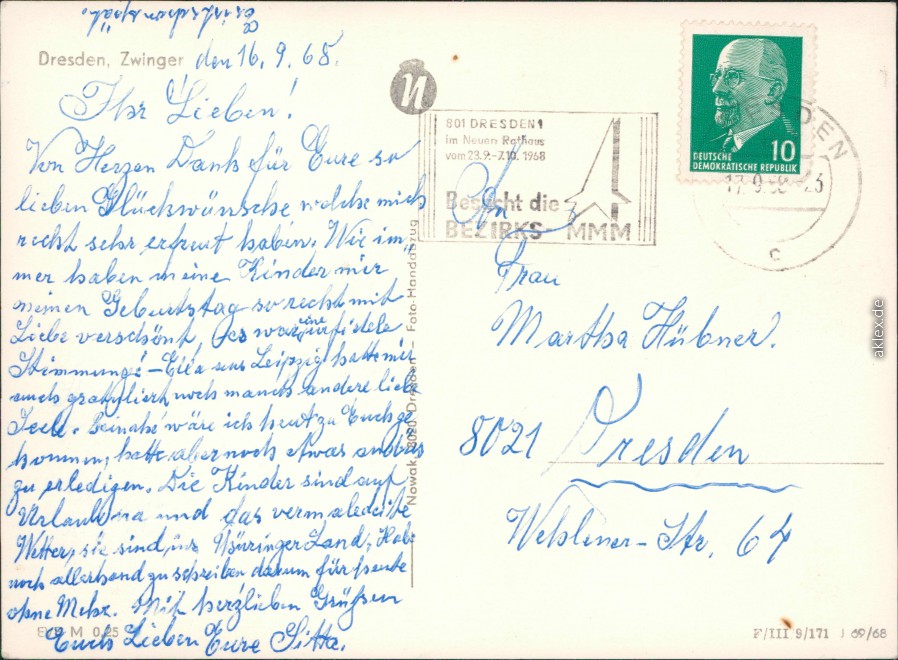 Dresden, Zwinger
den 16.9.68.
Ihr Lieben!
Von Herzen Dank für Eure so
lieben Glückwünsche welche mich
recht sehr erfreut haben. Wie im-
mer haben meine Kinder mir
meinen Geburtstag so recht mit
Liebe verschönt, es war eine fidele
Stimmung! - Ella aus Leipzig hatte mir
auch gratuliert, noch manch andere liebe
Seele. Beinahe wäre ich heut zu Euch ge-
kommen, hatte aber noch etwas anderes
zu erledigen. Die Kinder sind auf
Urlaub und das vermaledeite
Wetter, sie sind ins Thüringer Land. Habe
noch allerhand zu schreiben darum für heute
ohne Mehr. Mit herzlieben Grüßen
Euch Lieben Eure Sitta.
es ist schon spät.
N
801 DRESDEN 1
im Neuen Rathaus
vom 23.9.-7.10. 1968
Besucht die
BEZIRKS-MMM
DEUTSCHE
DEMOKRATISCHE REPUBLIK
10
DEN
17.9.
23
c
An
Frau
Martha Hübner.
8021 Dresden
Wehlener-Str. 64
Nowak, 8020 Dresden — Foto-Handabzug
M 0,25
F/III 9/171 J 69/68
aklex.de